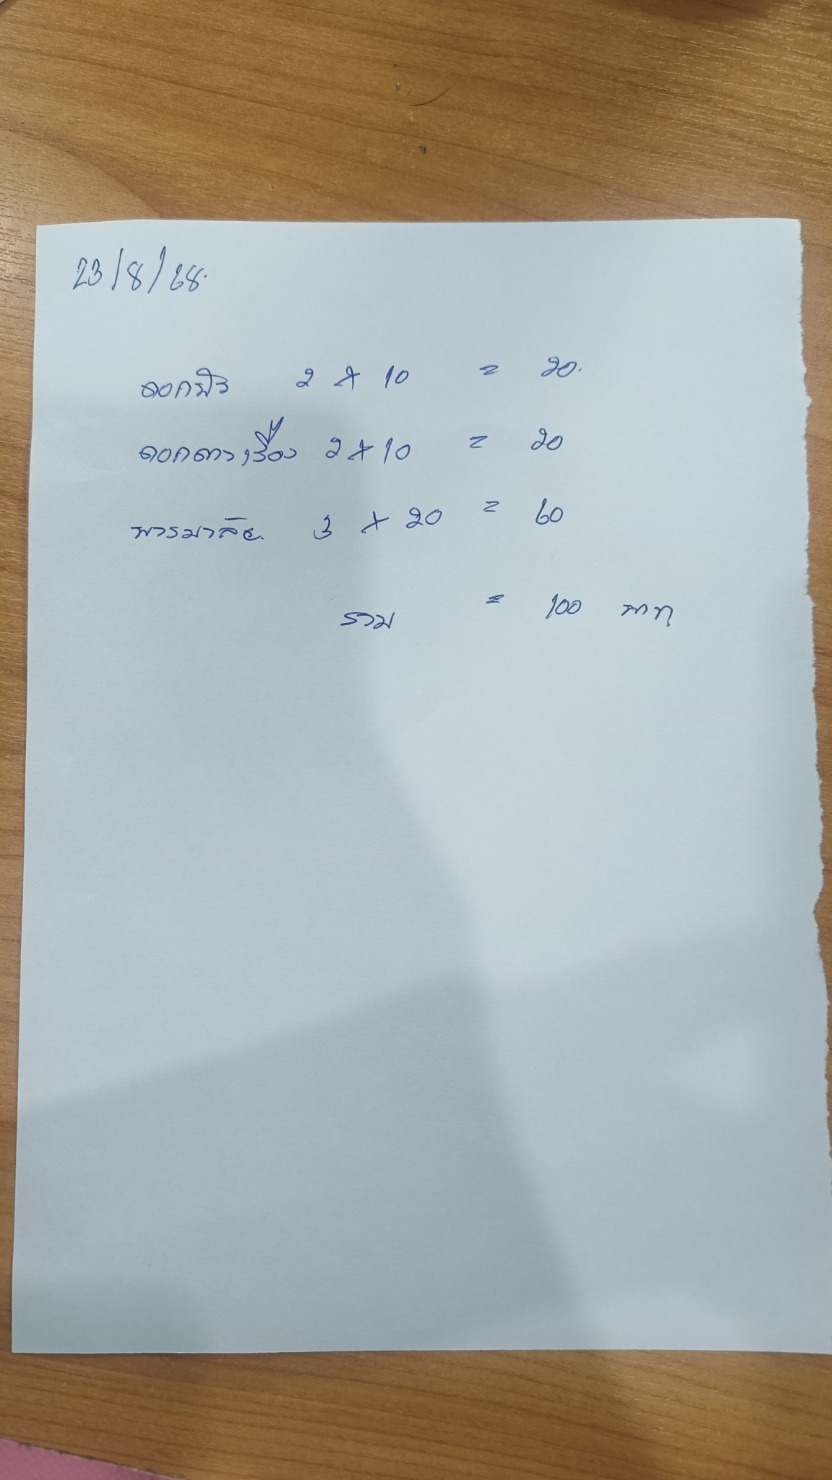 23/8/68.
ดอกบัว 2 x 10 = 20.
ดอกดาวเรือง 2 x 10 = 20
พวงมาลัย. 3 x 20 = 60
รวม = 100 บาท